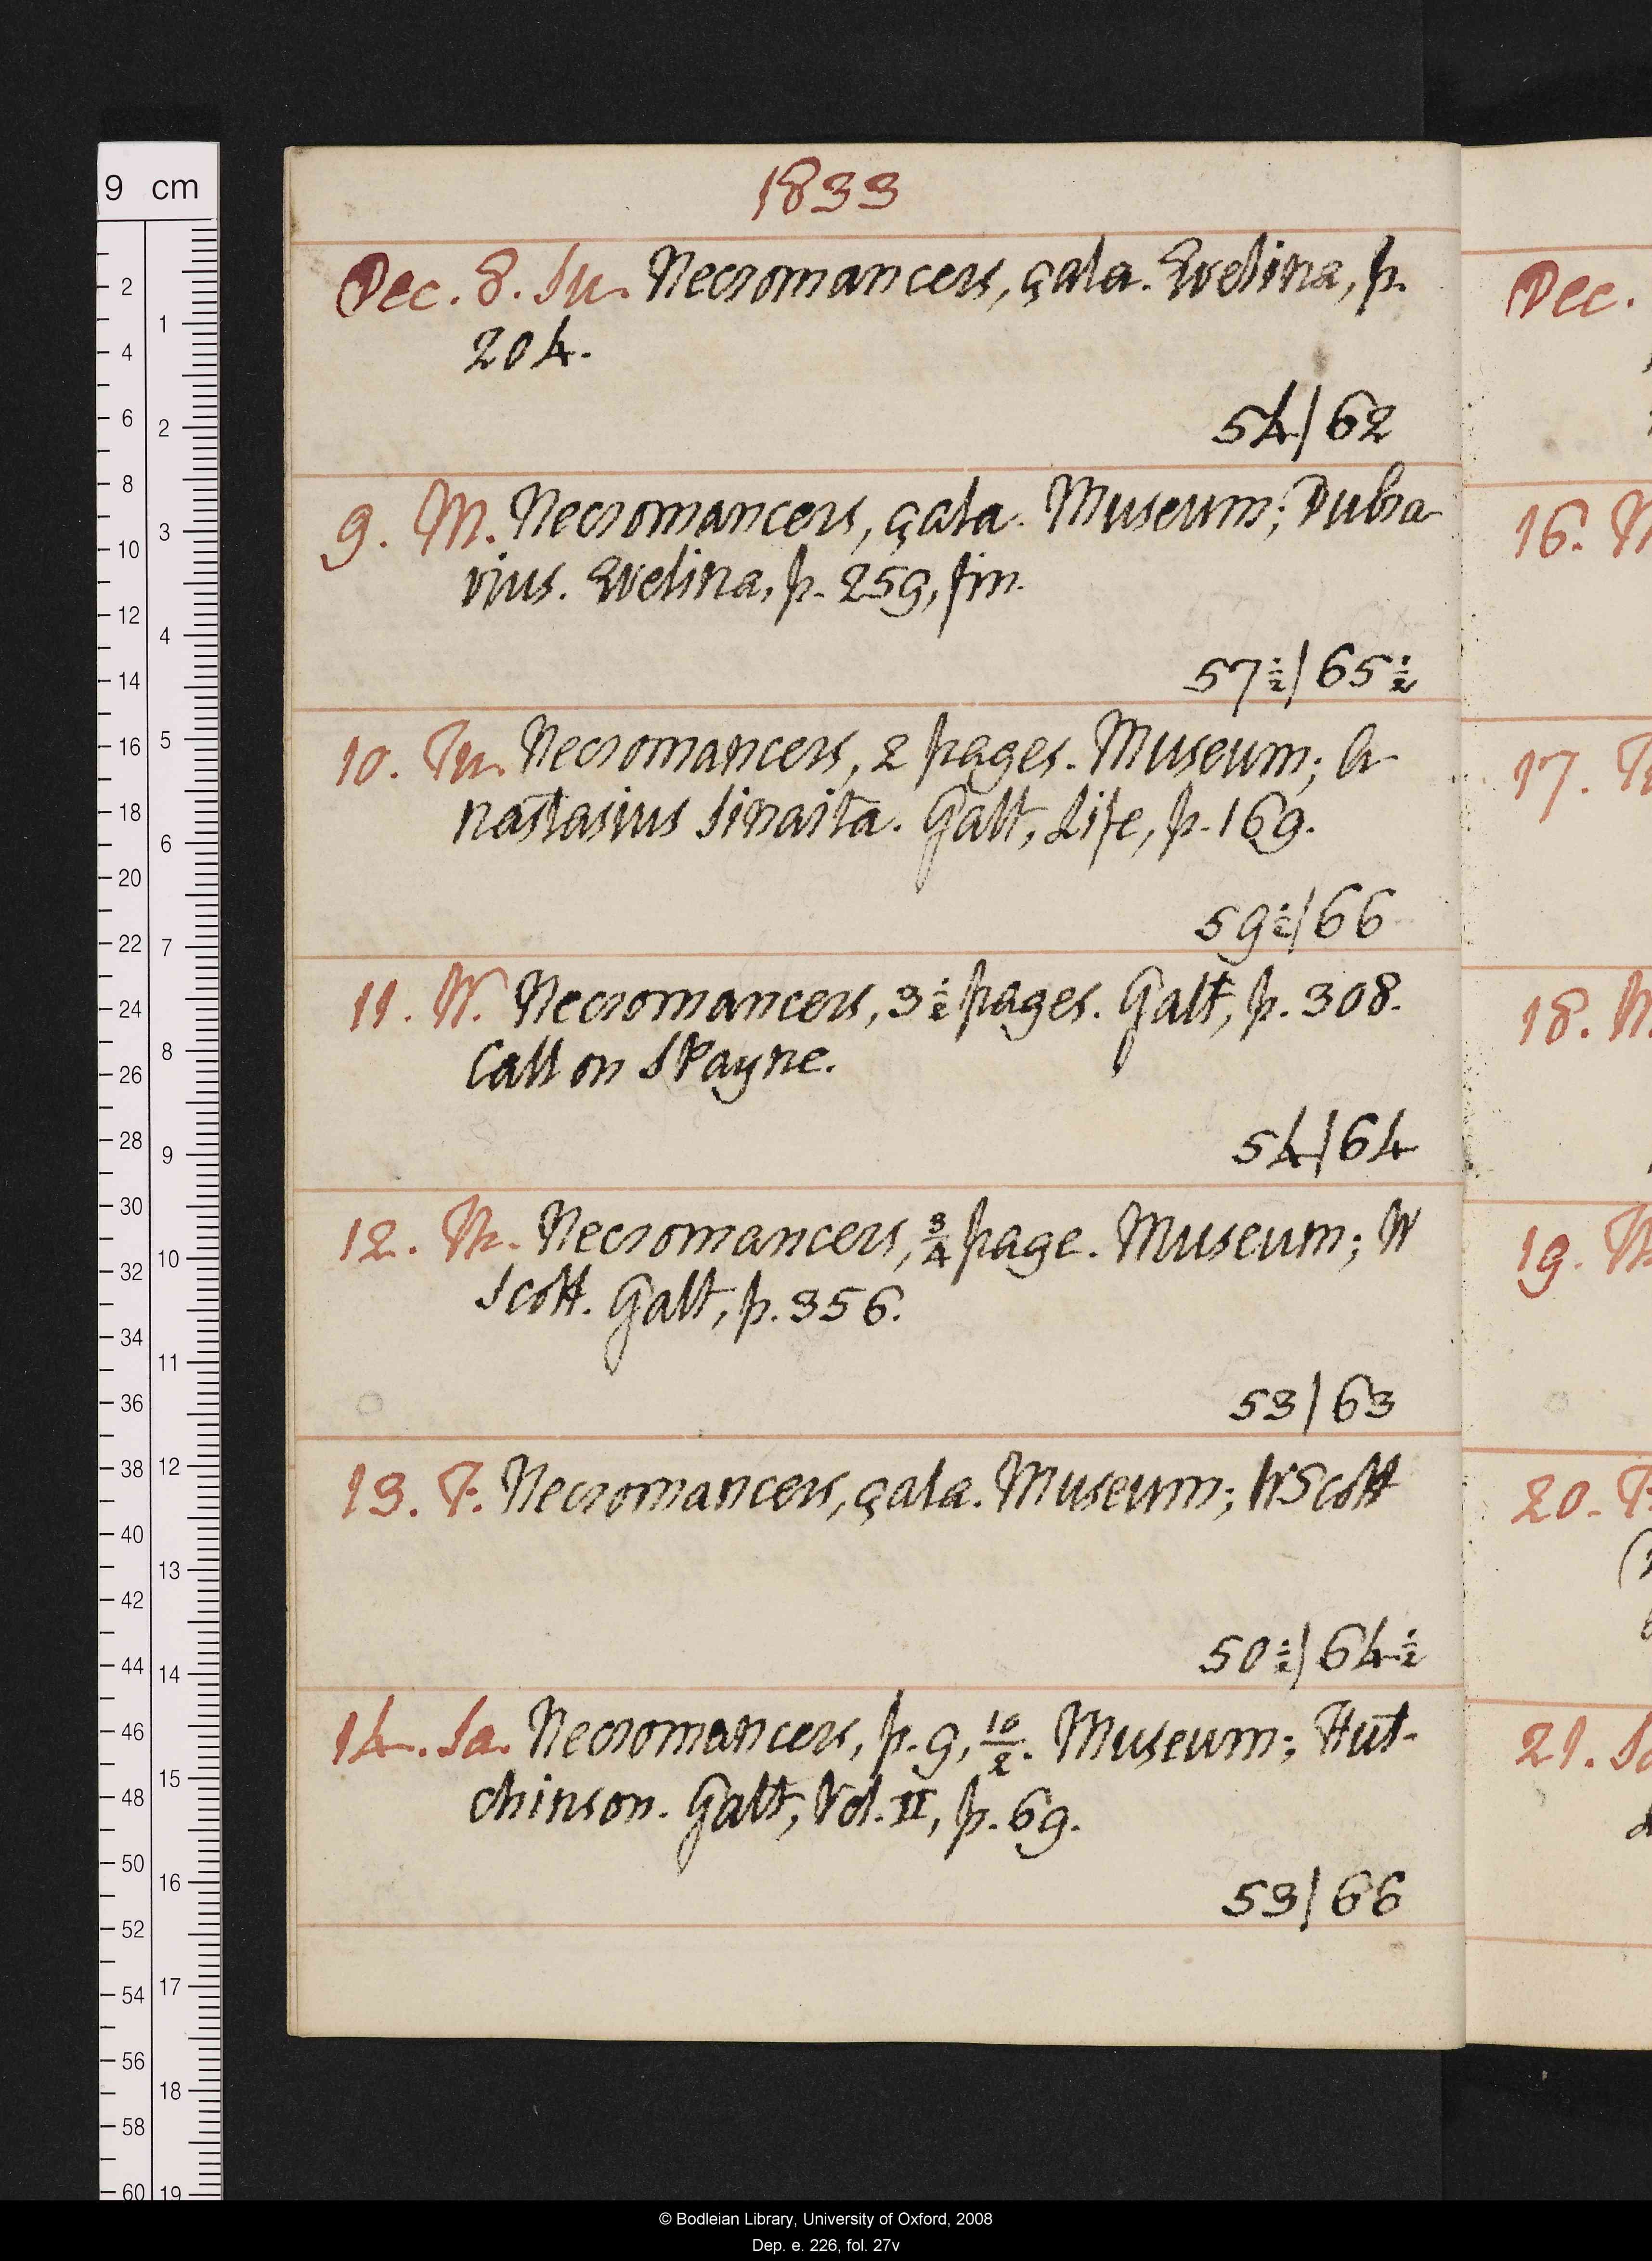 9 cm
1833
Dec. 8. Su. Necromancers, çala. Evelina, p.
204.
54/62
9. M. Necromancers, çala. Museum; Dubra-
vius. Evelina, p. 259, fin.
57½/65½
10. Tu. Necromancers, 2 pages. Museum; A-
nastasius Sinaita. Galt, Life, p. 169.
59½/66
11. W. Necromancers, 3½ pages. Galt, p. 308.
Call on J Payne.
54/64
12. Th. Necromancers, ¾ page. Museum; W
Scott. Galt, p. 356.
53/63
13. F. Necromancers, çala. Museum; W Scott
50½/64½
14. Sa. Necromancers, p. 9, 10/2. Museum; Hut-
chinson. Galt, Vol. II, p. 69.
53/66
Dec.
16. M
17. Tu
18.
19. Th
20. F.
21. Sa
© Bodleian Library, University of Oxford, 2008
Dep. e. 226, fol. 27v